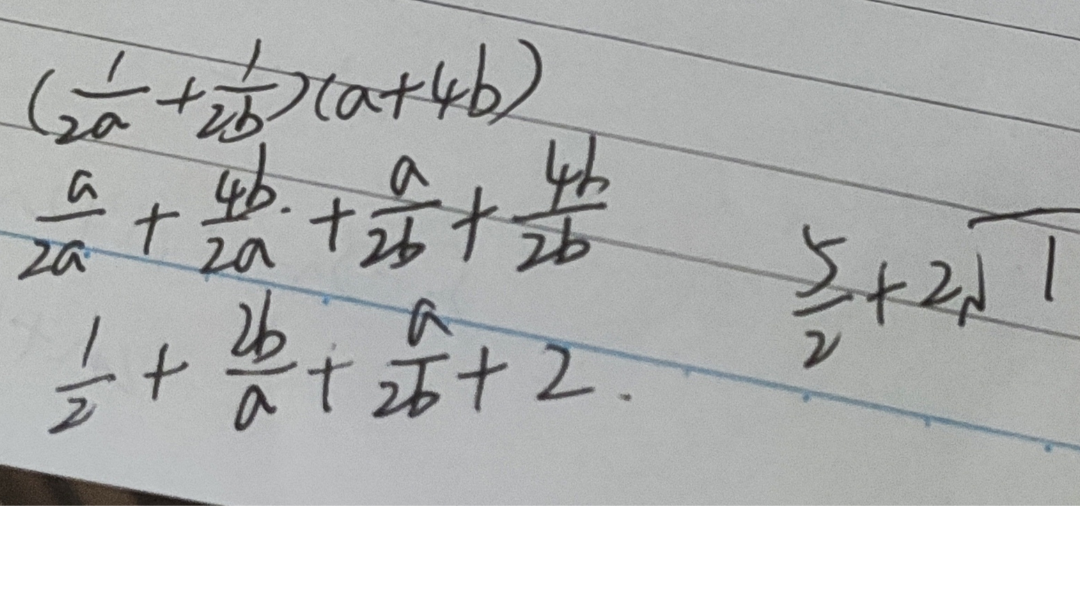 (1/2a + 1/2b)(a+4b)
a/2a + 4b/2a + a/2b + 4b/2b
1/2 + 2b/a + a/2b + 2.
5/2 + 2√1